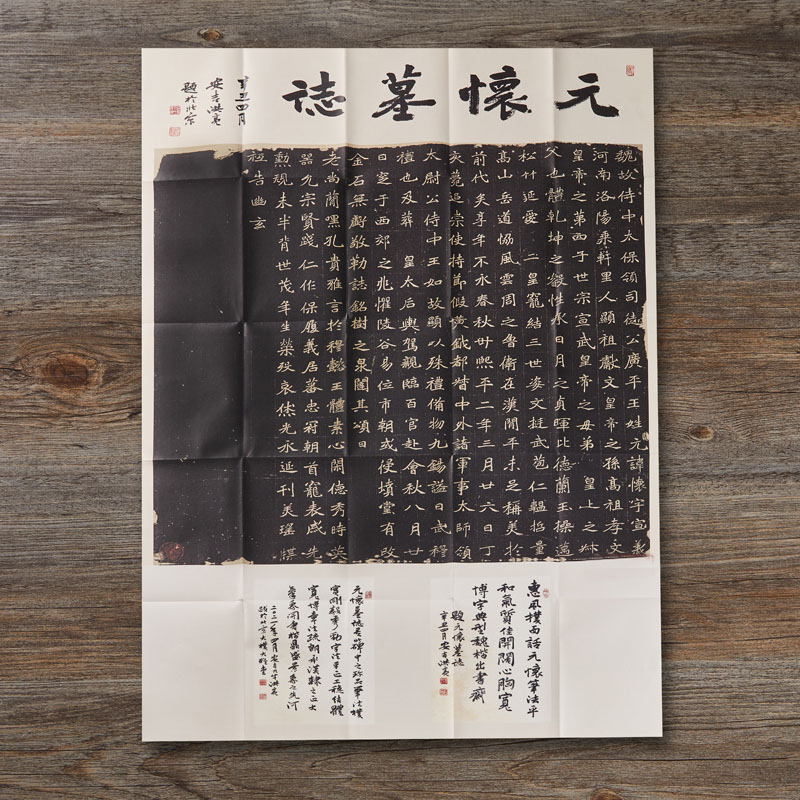 元懷墓誌
辛丑四月
安吉洪亮
題於北京
魏故侍中太保領司徒公廣平王姓元諱懷字宣義
河南洛陽乘軒里人顯祖獻文皇帝之孫高祖孝文
皇帝之第四子世宗宣武皇帝之母弟 皇上之叔
父也體乾坤之叡性承日月之貞暉比德蘭玉操邁
松竹延愛 二皇寵結三世姿文挺武苞仁韞哲量
高山岳道協風雲周之魯衛在漢閒平未足稱美於
前代矣享年不永春秋卅熙平二年三月廿六日丁
亥薨追崇使持節假黃鉞都督中外諸軍事太師領
太尉公侍中王如故顯以殊禮備物九錫謚曰武穆
禮也及葬 皇太后輿駕親臨百官赴會秋八月廿
日窆于西郊之兆懼陵谷易位市朝或侵墳堂有改
金石無虧敬勒誌銘樹之泉闥其頌曰
老尚簡嘿孔貴雅言於穆懿王體素心閑德秀時英
器允宗賢踐仁作保履義居蕃忠冠朝首寵表戚先
勲規未半背世茂年生榮歿哀休光永延刊美瑤牒
祖告幽玄
惠風撲面話元懷筆法平
和氣質佳開闊心胸寬
博字典型魏楷出書齋
題元懷墓誌
辛丑四月安吉洪亮
元懷墓誌爲碑中之珍品筆法樸
寬博章法疏朗承漢隸之正大
二〇二一年四月安吉洪亮